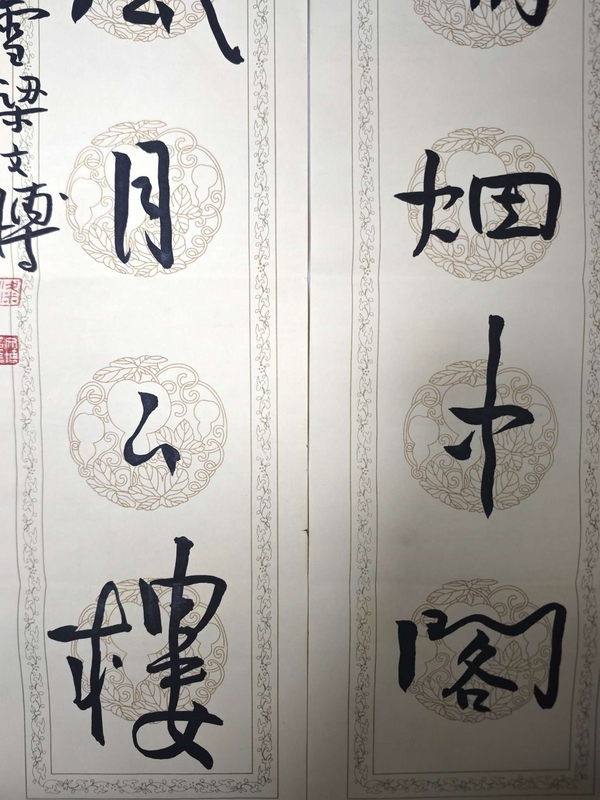 烟中閣
風月樓
雪梁文博